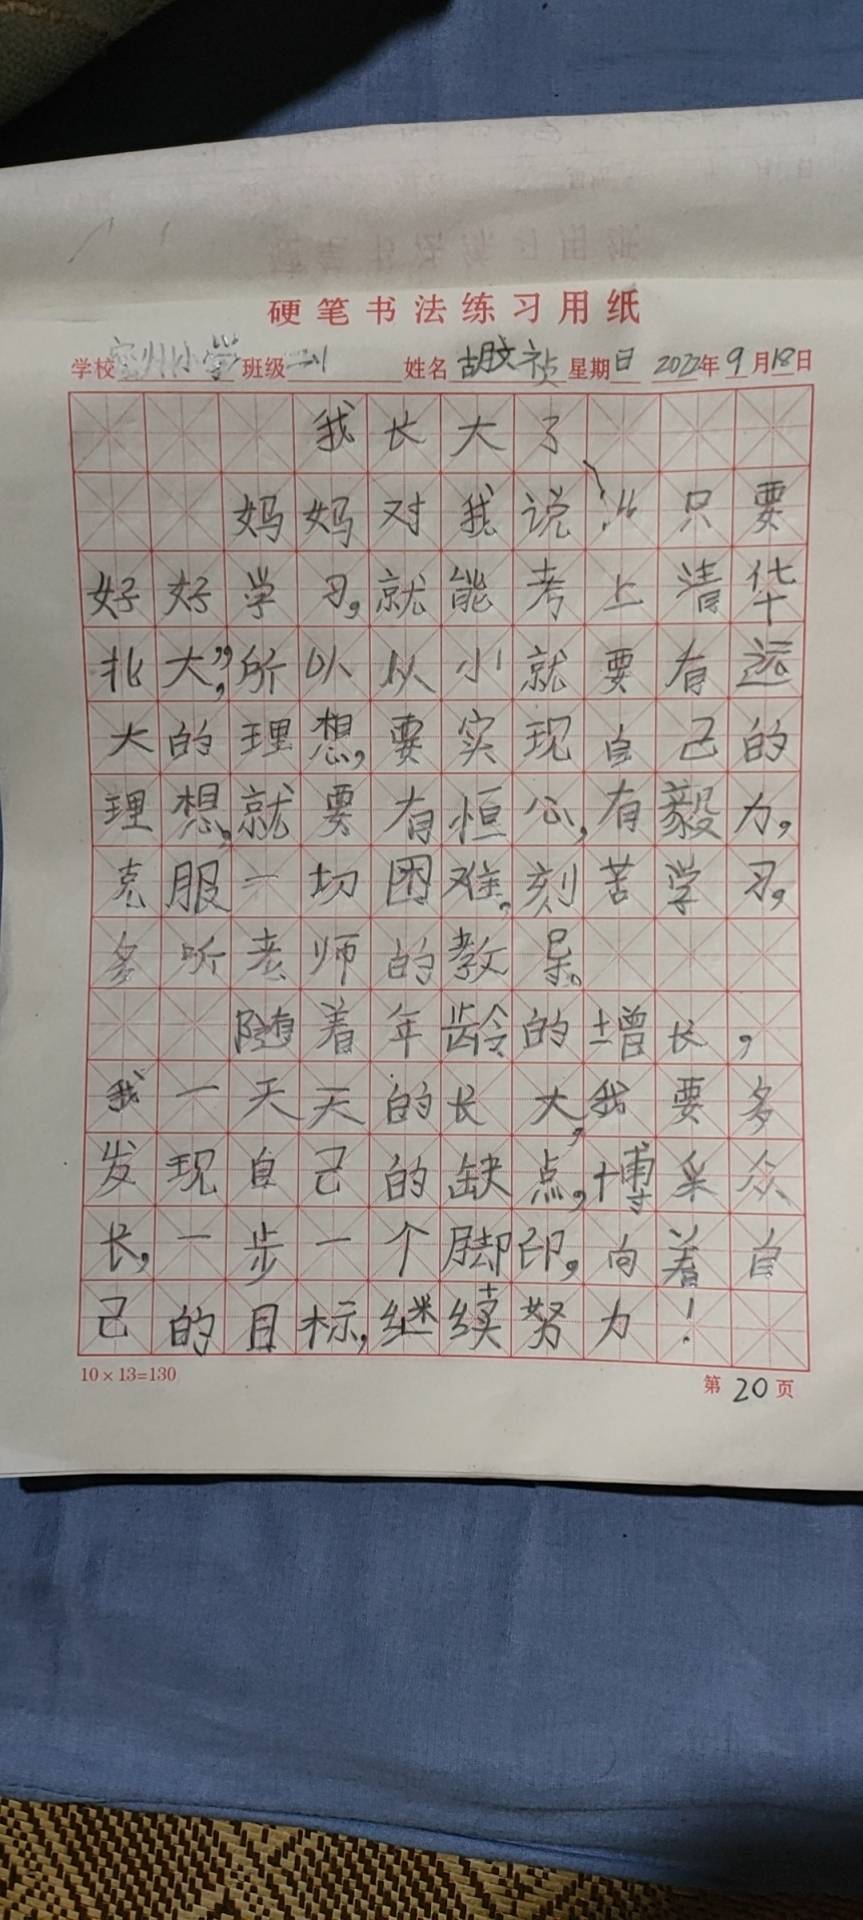 硬笔书法练习用纸
学校 密州小学 班级 二1 姓名 胡文祯 星期 日 2022年9月18日
我长大了
妈妈对我说:“只要
好好学习,就能考上清华
北大”,所以从小就要有远
大的理想,要实现自己的
理想,就要有恒心,有毅力,
克服一切困难,刻苦学习,
多听老师的教导。
随着年龄的增长,
我一天天的长大,我要多
发现自己的缺点,博采众
长,一步一个脚印,向着自
己的目标,继续努力!
10×13=130 第20页